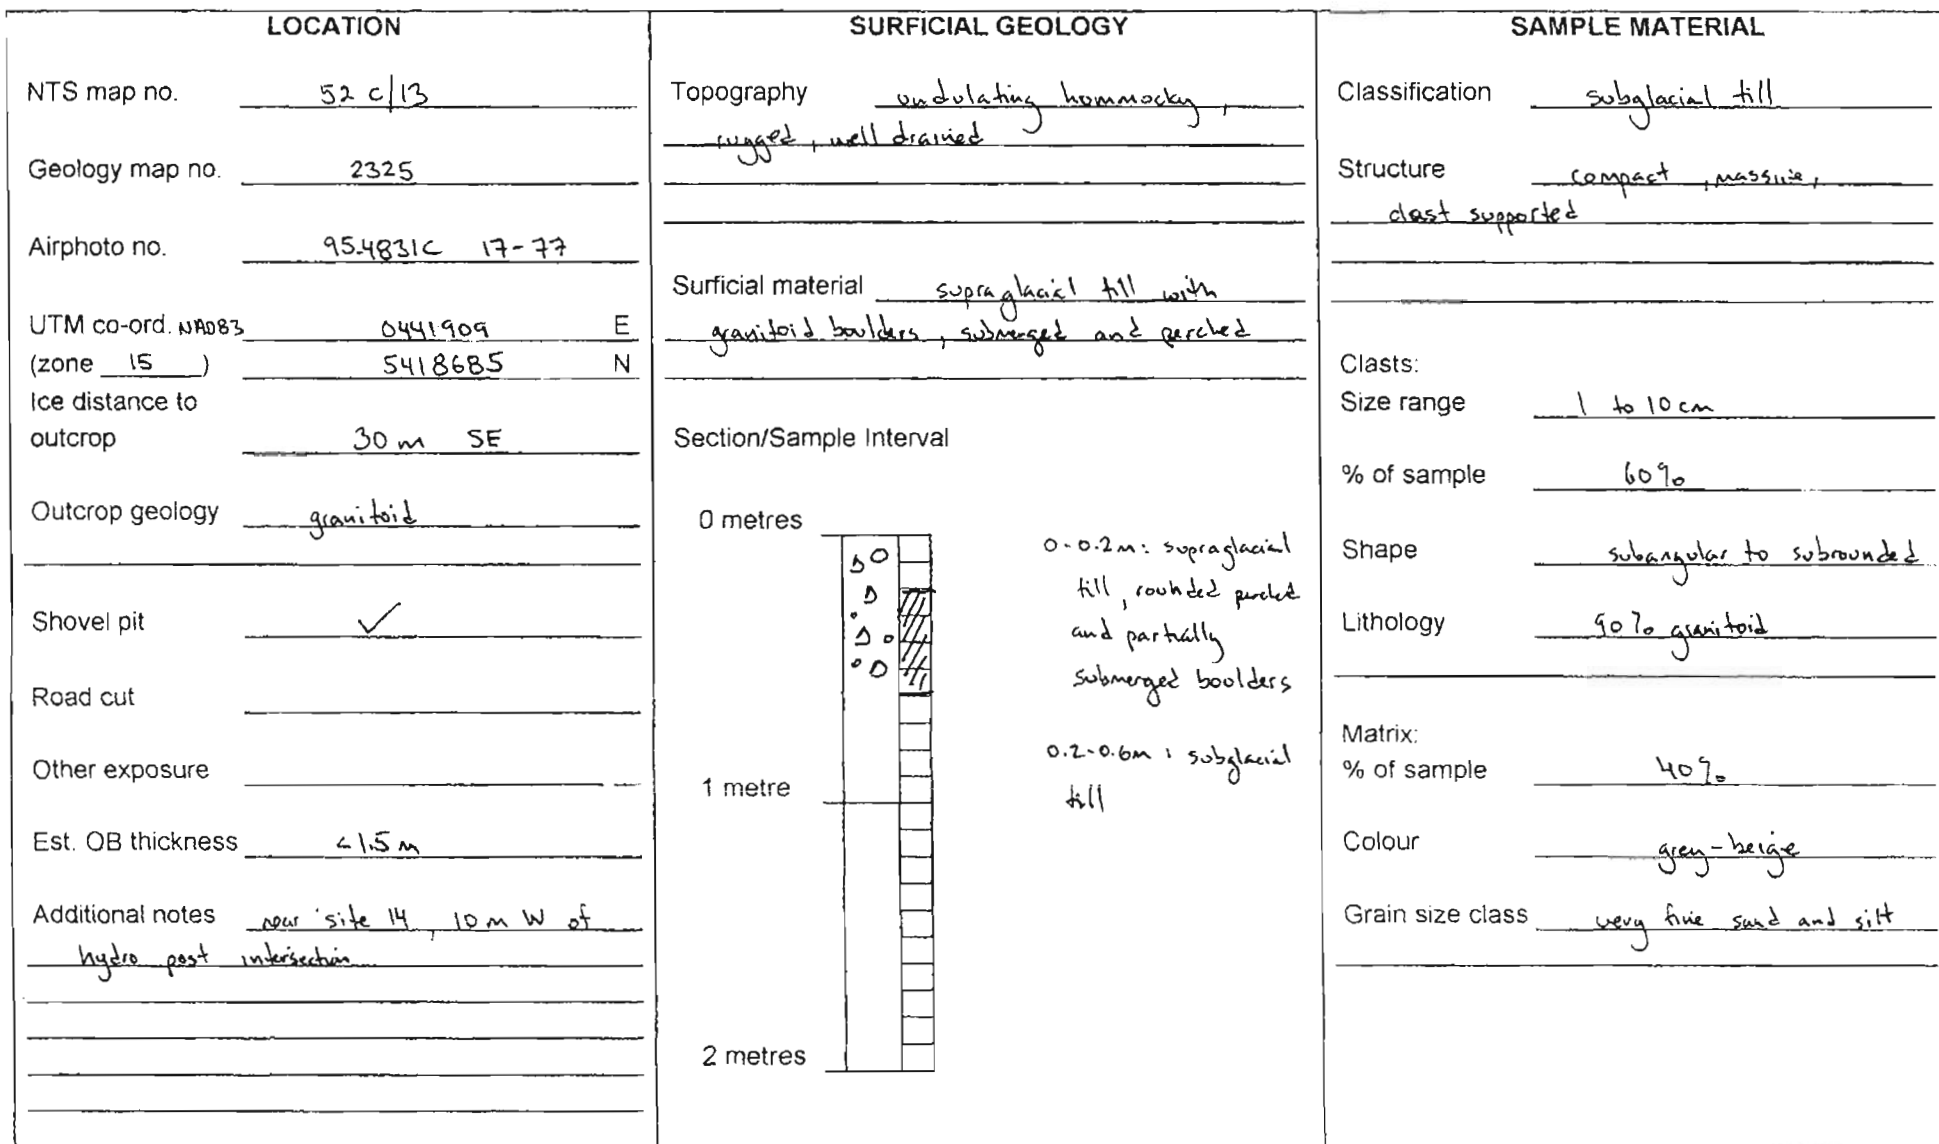 LOCATION
NTS map no. 52 c/13
Geology map no. 2325
Airphoto no. 95-4831C 17-77
UTM co-ord. NAD83 0441909 E
(zone 15) 5418685 N
Ice distance to
outcrop 30 m SE
Outcrop geology granitoid
Shovel pit ✓
Road cut
Other exposure
Est. OB thickness <1.5 m
Additional notes near site 14, 10 m W of
hydro post intersection
SURFICIAL GEOLOGY
Topography undulating hommocky,
rugged, well drained
Surficial material supraglacial till with
granitoid boulders, submerged and perched
Section/Sample Interval
0 metres
1 metre
2 metres
0-0.2m: supraglacial
till, rounded perched
and partially
submerged boulders
0.2-0.6m: subglacial
till
SAMPLE MATERIAL
Classification subglacial till
Structure compact, massive,
clast supported
Clasts:
Size range 1 to 10 cm
% of sample 60%
Shape subangular to subrounded
Lithology 90% granitoid
Matrix:
% of sample 40%
Colour grey-beige
Grain size class very fine sand and silt